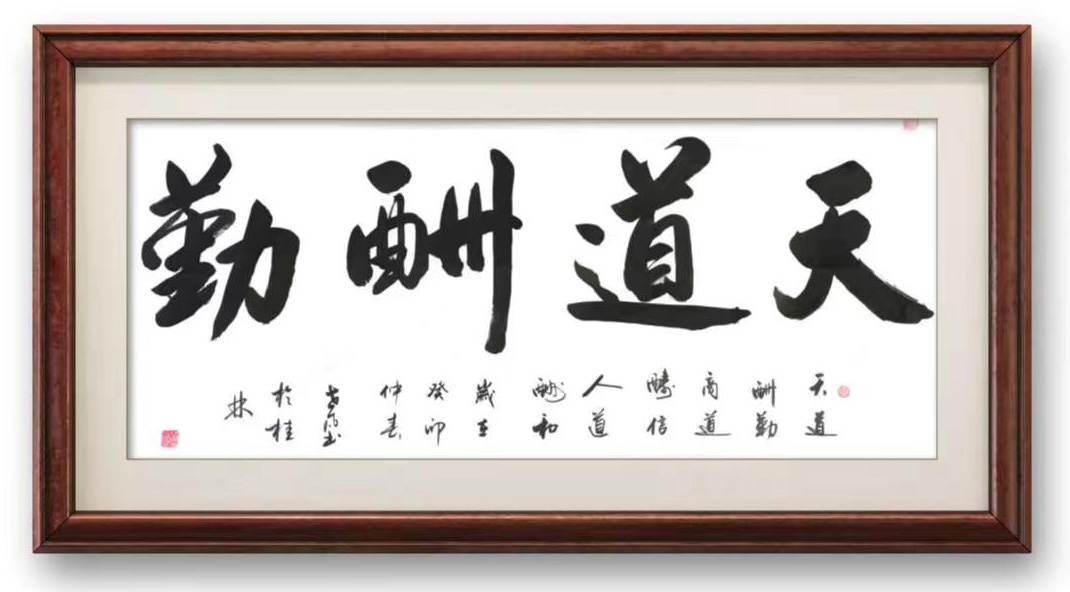 天道酬勤
天道
酬勤
商道
酬信
人道
酬和
歲在
癸卯
仲春
於桂
林